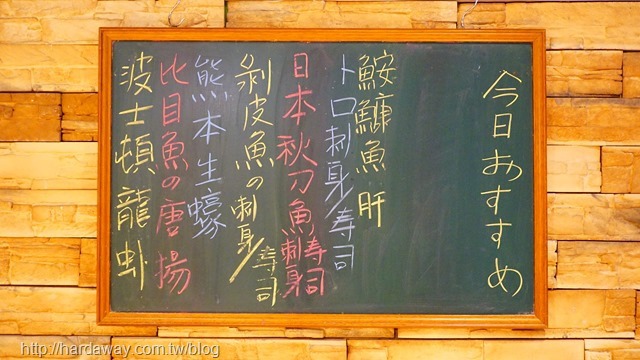 今日おすすめ
鮟鱇魚肝
トロ刺身/寿司
日本秋刀魚刺身/寿司
剝皮魚の刺身/寿司
熊本生蠔
比目魚の唐揚
波士頓龍蝦
http://hardaway.com.tw/blog